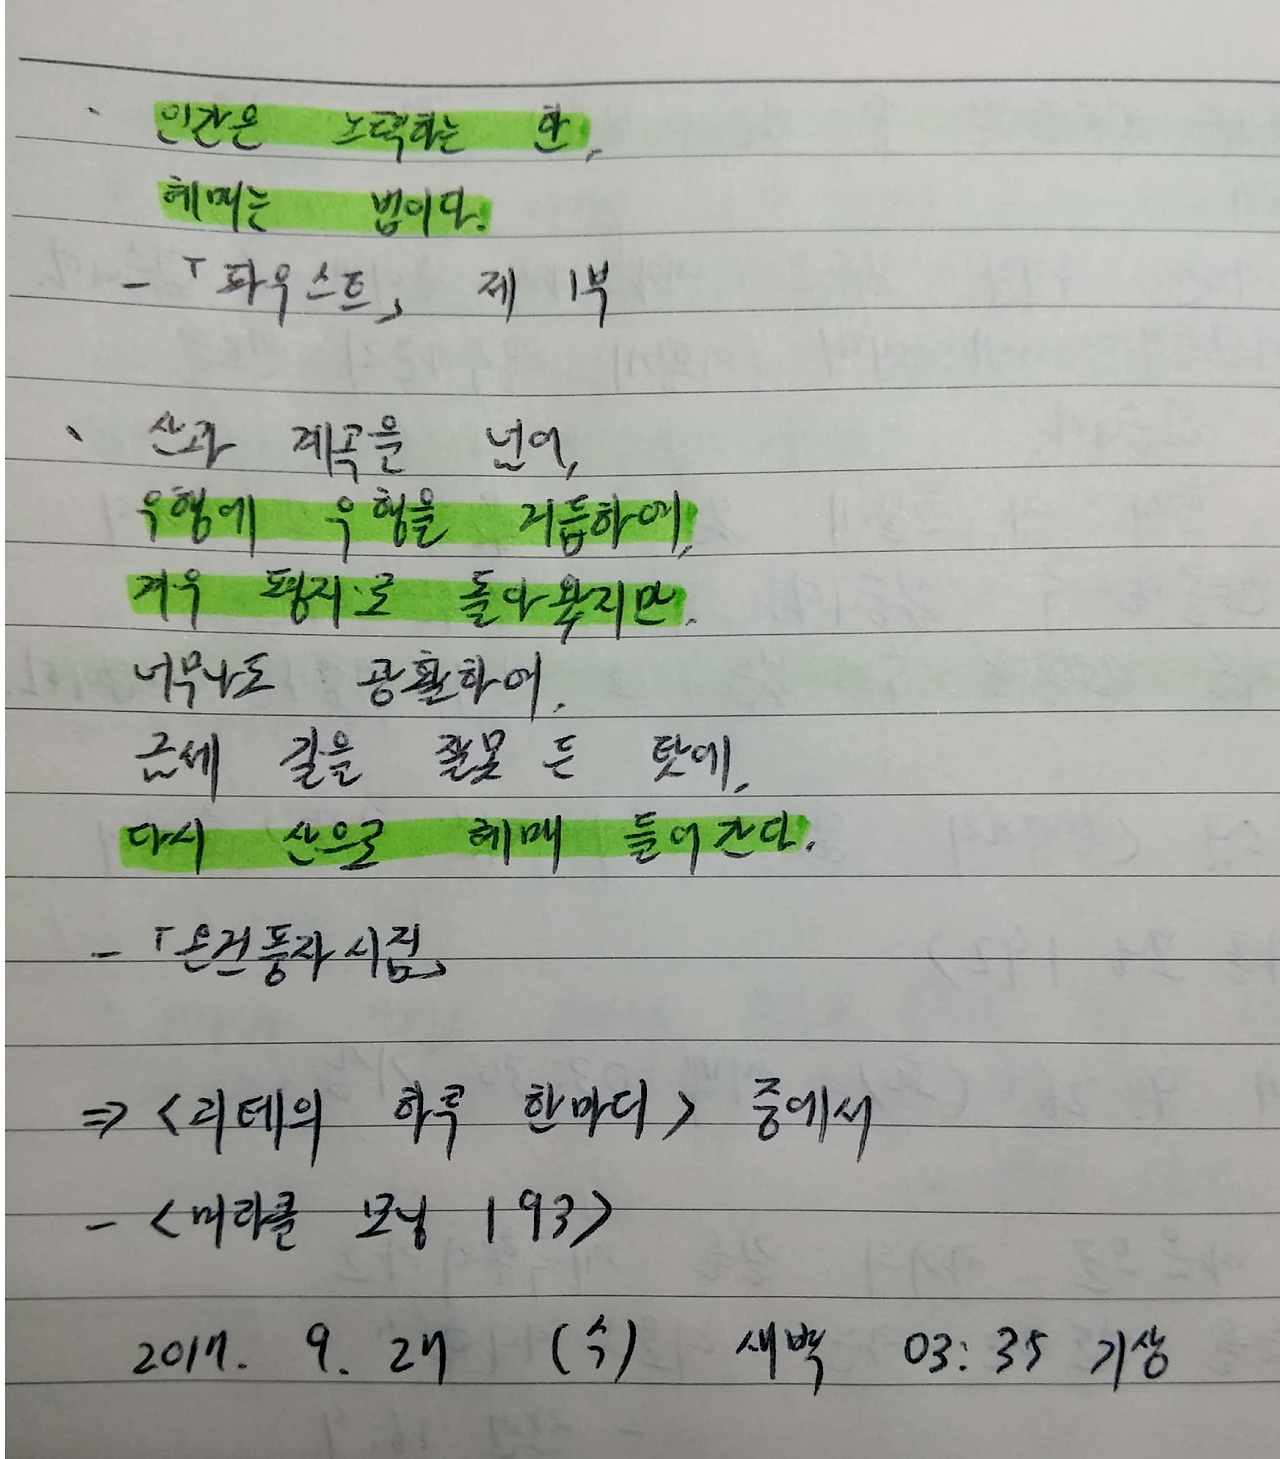 ` 인간은 노력하는 한,
헤매는 법이다.
- 「파우스트」 제 1부
` 산과 계곡을 넘어,
우행에 우행을 거듭하여,
겨우 평지로 돌아왔지만.
너무나도 광활하여.
금세 길을 잘못 든 탓에,
다시 산으로 헤매 들어간다.
- 「온건풍자시집」
⇒ <괴테의 하루 한마디> 중에서
- <미라클 모닝 193>
2017. 9. 27 (수) 새벽 03:35 기상